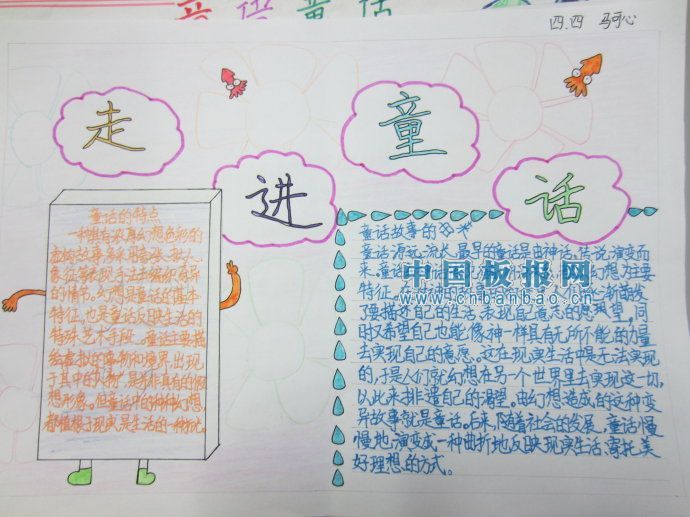 童话
四.四 马可心
走进童话
童话的特点
一种具有浓厚幻想色彩的
的情节。幻想是童话的基本
特征,也是童话反映生活的
特殊艺术手段。童话主要描
绘虚拟的事物和境界,出现
于其中的"人物",是并非真有的假
想形象。但童话中的种种幻想,
都植根于现实,是生活的一种折光
童话故事的
童话源远流长,最早的童话是由神话、传说演变而
来。童话
中国板报网
幻想为主要
特征。
www.cnbanbao.cn
渐萌发
了要描述自己的生活,表现自己意志的愿望,同
时又希望自己也能像神一样具有无所不能的力量
去实现自己的意愿。这在现实生活中是无法实现
的,于是人们就幻想在另一个世界里去实现这一切,
以此来排遣自己的渴望。由幻想造成的这种变
异故事就是童话。后来,随着社会的发展,童话慢
慢地演变成一种曲折地反映现实生活、寄托美
好理想的方式。